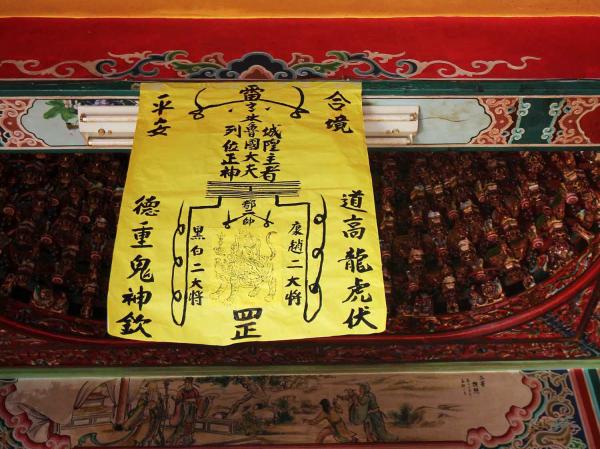 合境
平安
雷令
魯國大夫
城隍主者
列位正神
都帥
康趙二大将
黑白二大将
道高龍虎伏
德重鬼神欽
罡